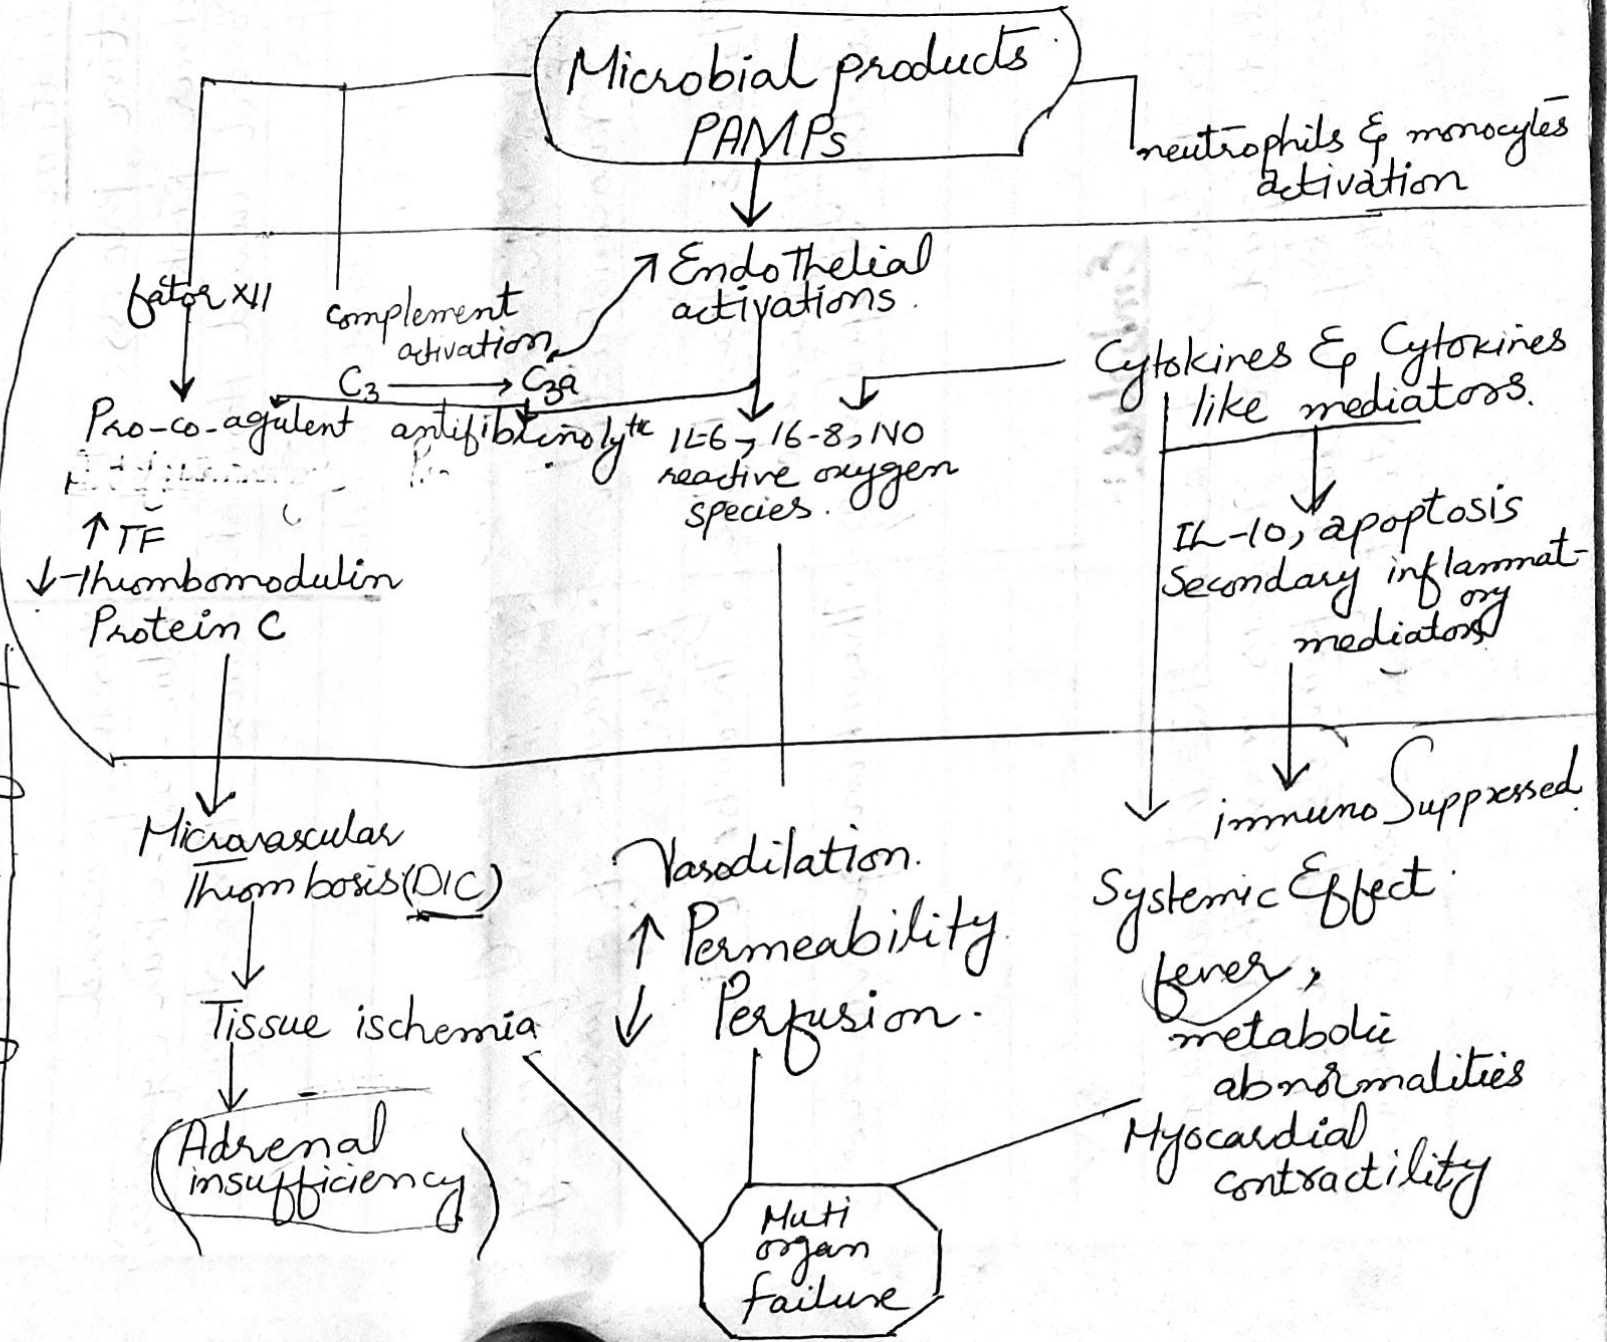 Microbial products
PAMPs
neutrophils & monocytes
activation
fator XII
complement
activation
C3 → C3a
Endothelial
activations.
Cytokines & Cytokines
like mediators.
Pro-co-agulent
antifibrinolytic
IL6, 16-8, NO
reactive oxygen
species.
↑ TF
↓ Thrombomodulin
Protein C
IL-10, apoptosis
Secondary inflammat-
ory
mediators
Microvascular
Thrombosis (DIC)
Tissue ischemia
Adrenal
insufficiency
Vasodilation.
↑ Permeability.
↓ Perfusion.
immuno Suppressed.
Systemic Effect.
fever,
metabolic
abnormalities
Myocardial
contractility
Muti
organ
failure